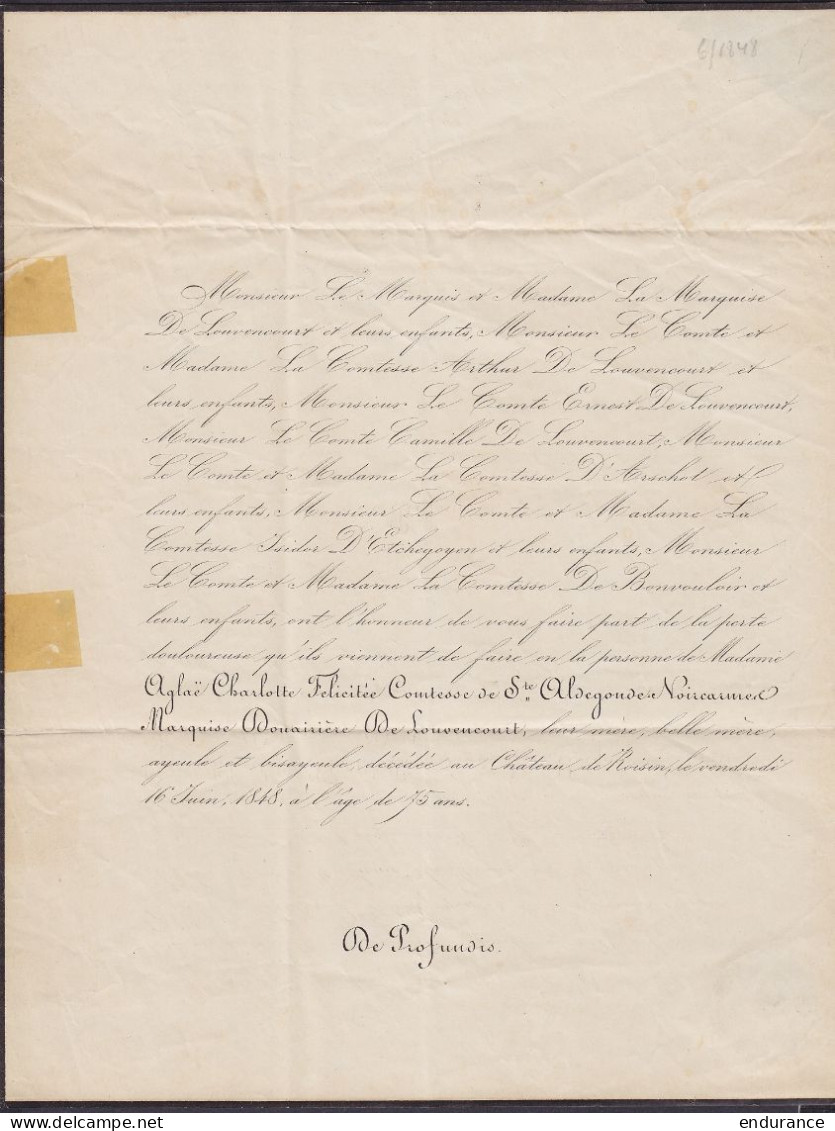 6/1848
Monsieur Le Marquis et Madame La Marquise
De Louvencourt et leurs enfants, Monsieur Le Comte et
Madame La Comtesse Arthur De Louvencourt et
leurs enfants, Monsieur Le Comte Ernest De Louvencourt,
Monsieur Le Comte Camille De Louvencourt, Monsieur
Le Comte et Madame La Comtesse D'Arschot et
leurs enfants, Monsieur Le Comte et Madame La
Comtesse Isidor D'Etchegoyen et leurs enfants, Monsieur
Le Comte et Madame La Comtesse De Bonvouloir et
leurs enfants, ont l'honneur de vous faire part de la perte
douloureuse qu'ils viennent de faire en la personne de Madame
Aglaë Charlotte Felicitée Comtesse de Ste Aldegonde Noircarmes
Marquise Douairière De Louvencourt, leur mère, belle mère,
ayeule et bisayeule, décédée au Château de Roisin, le vendredi
16 Juin, 1848, à l'âge de 75 ans.
De Profundis.
endurance
© delcampe.net